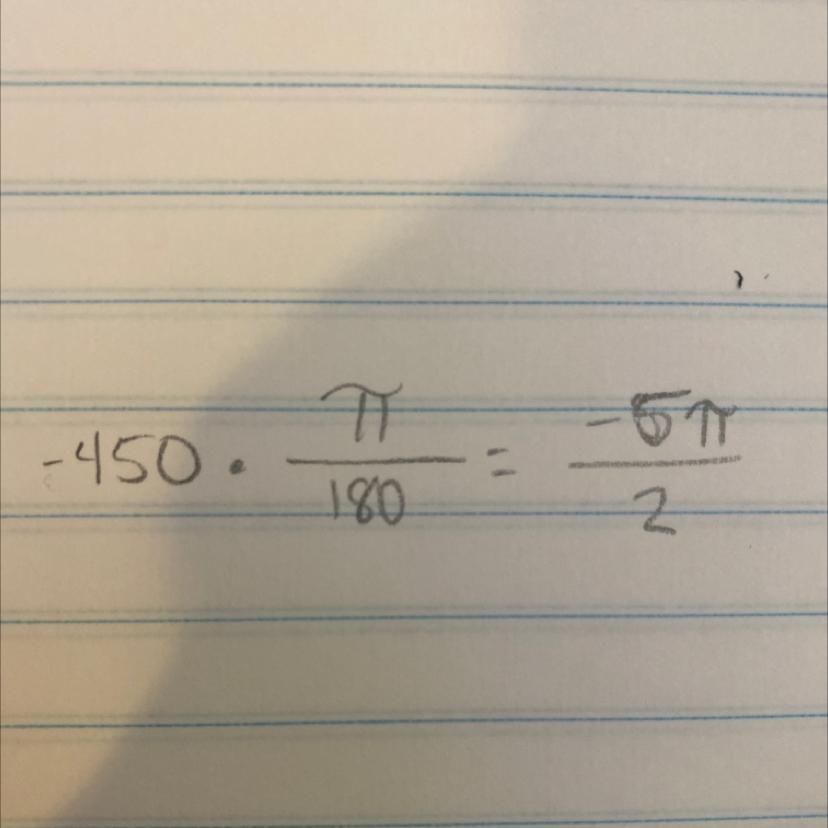 -450 · π/180 = -5π/2